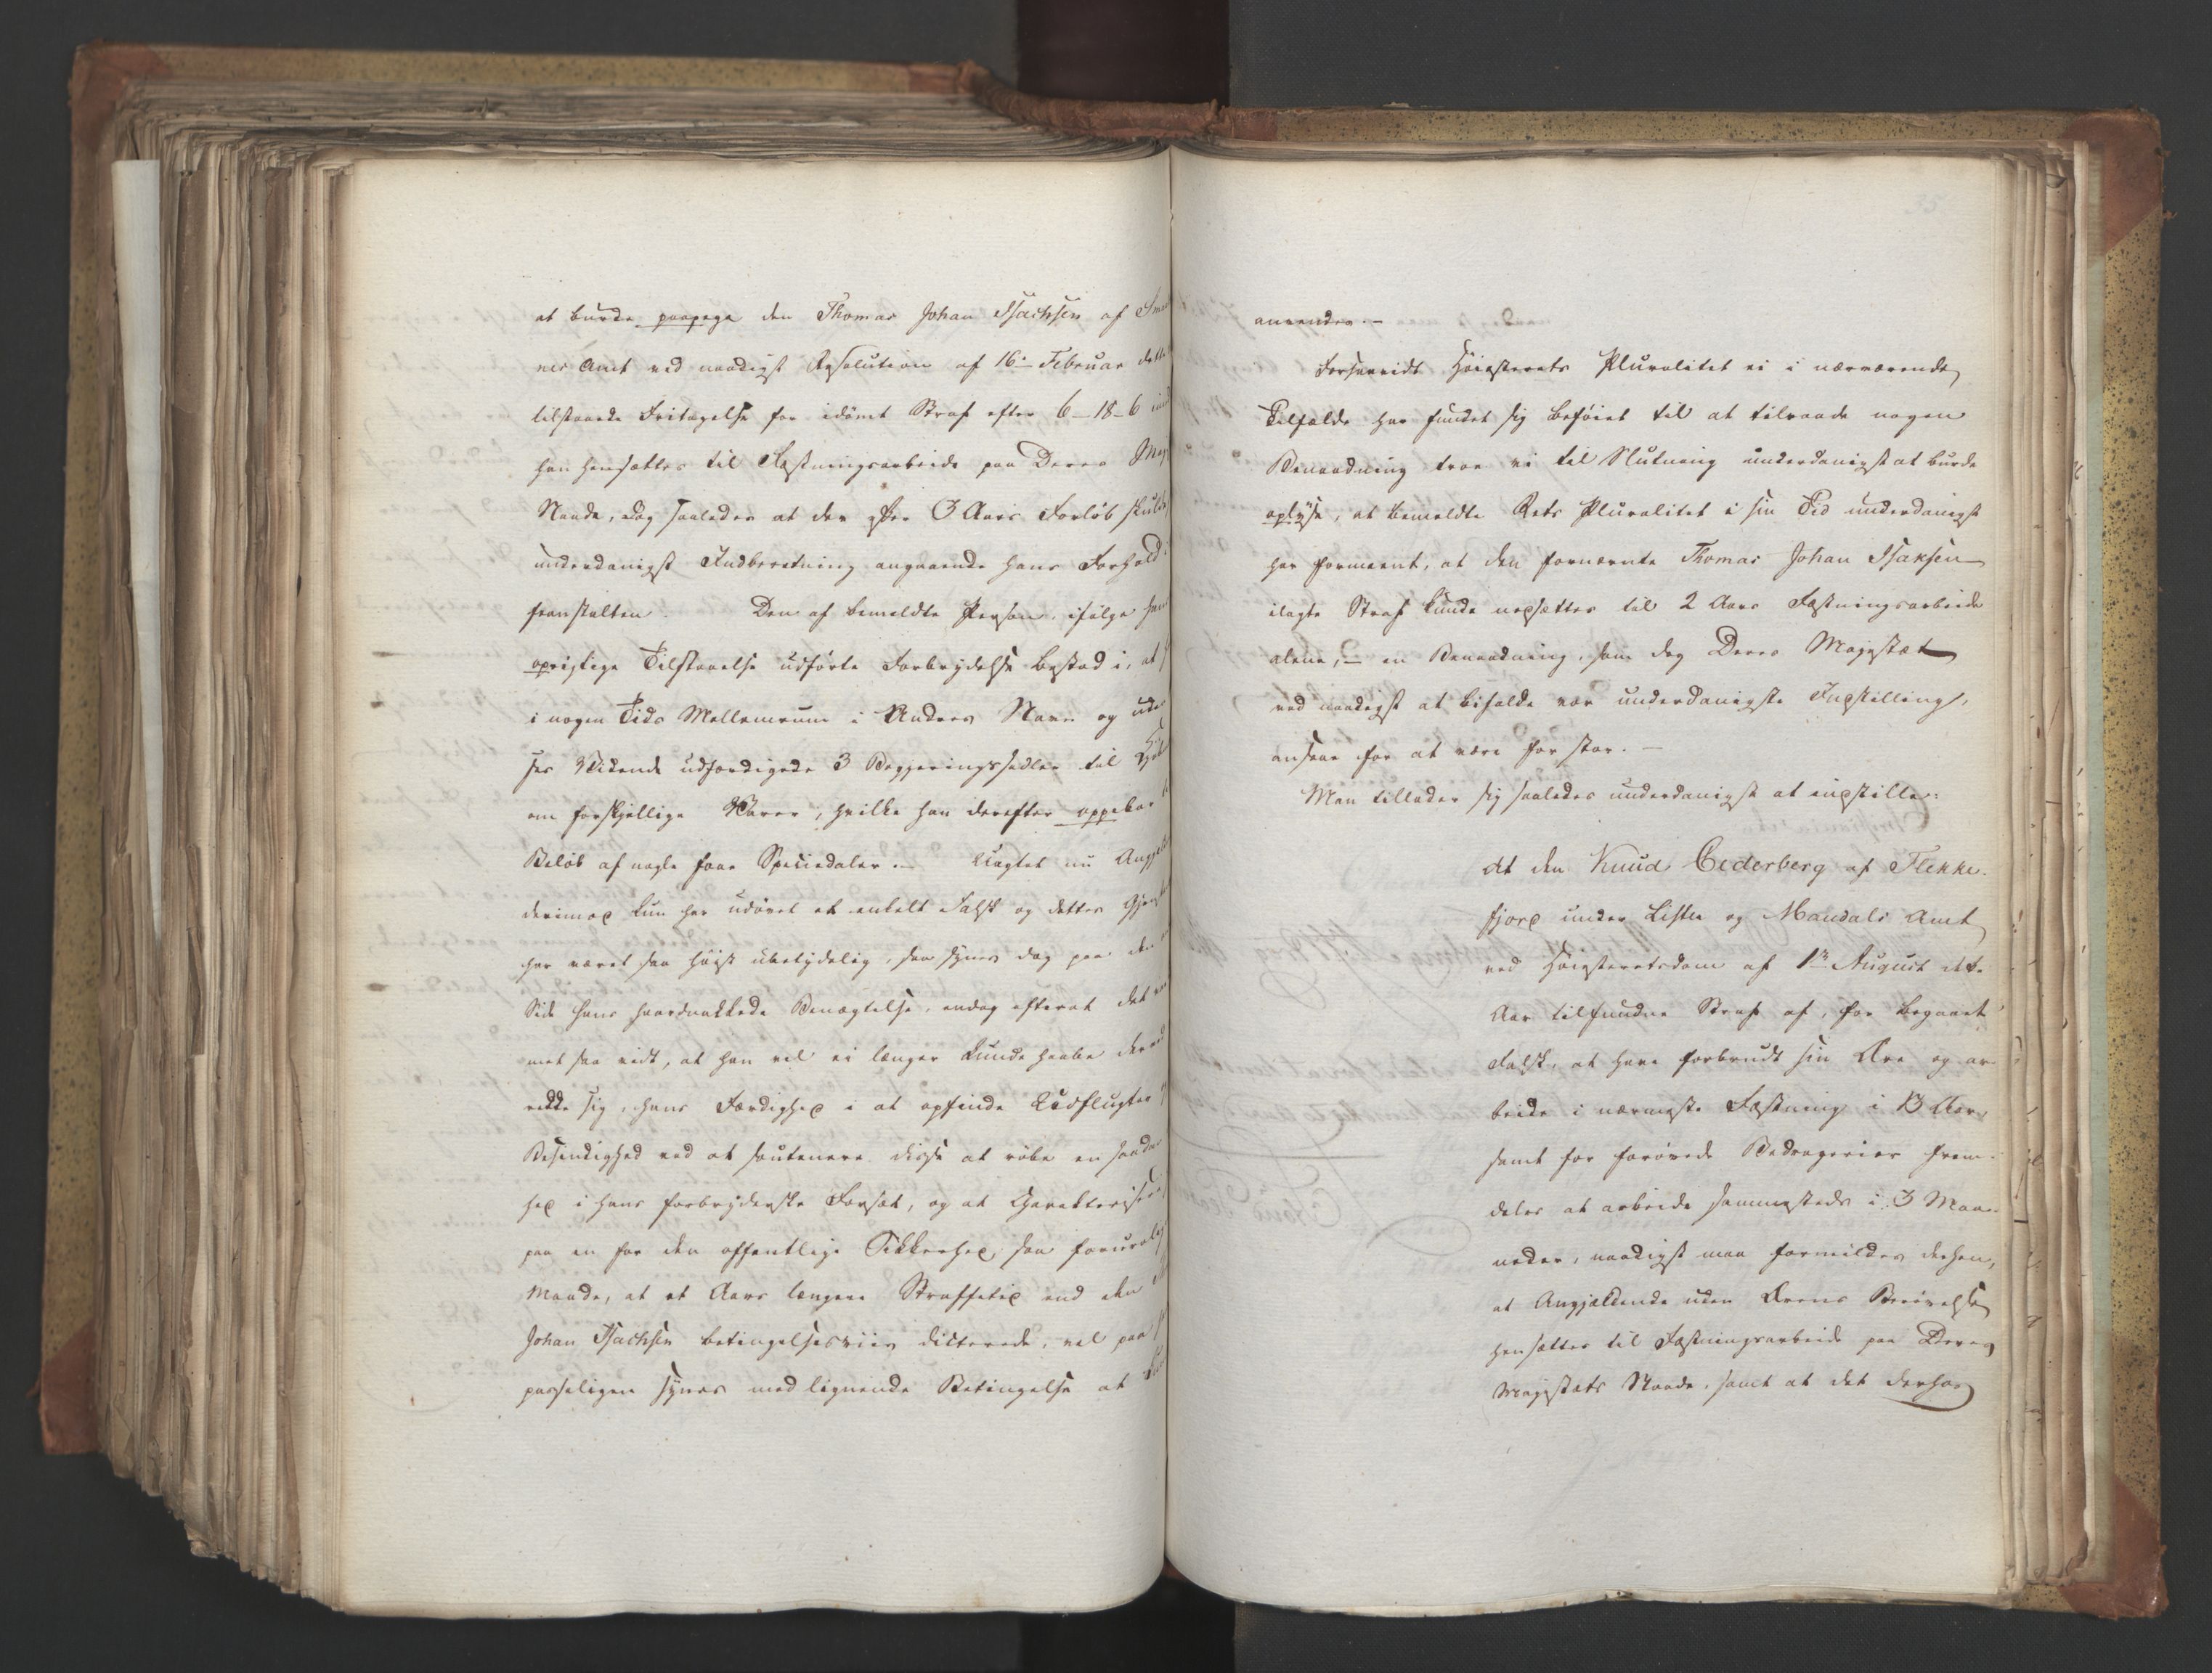 at burde paapege den Thomas Johan Isachsen af Smaa
nes Amt ved naadigst Resolution af 16de Februar dette
tilstaaede Fritagelse for idømt Straf efter 6-18-6 imod
han hensættes til Fæstningsarbeide paa Deres Maj
Naade, dog saaledes at der efter 3 Aars Forløb skulde
underdanigst Indberetning angaaende hans Forhold i
franstalten. Den af bemeldte Person, ifølge hans
oprigtige Tilstaaelse udførte Forbrydelse bestod i, at
i nogen Tids Mellemrum i Andres Navn og uden
ses Vidende udfærdigede 3 Begjeringssedler til
om forskjellige Varer, hvilke han derefter oppebar
Beløb af nogle faae Speciedaler. Uagtet nu Angjel
derimod kun har udøvet et enkelt Falsk og dettes Gjenst
har været saa høist ubetydelig, saa synes dog paa den
Side hans haardnakkede Benægtelse, endog efterat det var
met saa vidt, at han vel ei længer kunde haabe derved
redde sig, hans Færdighed i at opfinde Udflugter og
Behændighed ved at soutenere disse at røbe en saadan
hed i hans forbryderske Forsæt, og at Charakterisere
paa en for den offentlige Sikkerhed saa foruroligende
Maade, at et Aars længere Straffetid end den
Johan Isachsen betingelsesviis dicterede, vel paa
passeligen synes med lignende Betingelse at
35
anvendes.
Forsaavidt Høiesterets Pluralitet ei i nærværende
Tilfælde har fundet sig beføiet til at tilraade nogen
Benaadning troe vi til Slutning underdanigst at burde
oplyse, at bemeldte Rets Pluralitet i sin Tid underdanigst
har formeent, at den fornævnte Thomas Johan Isaksen
ilagte Straf kunde nedsættes til 2 Aars Fæstningsarbeide
alene, en Benaadning, som dog Deres Majestæt
ved naadigst at bifalde vor underdanigste Indstilling,
ansaae for at være for stor.
Man tillader sig saaledes underdanigst at indstille:
At den Knud Cederberg af Flekke-
fjord under Lister og Mandals Amt
ved Høiesteretsdom af 1ste August d. A.
Aar tilfundne Straf af, for begaaet
Falsk, at have forbrudt sin Ære og ar-
beide i nærmeste Fæstning i 3 Aar,
samt for forøvede Bedragerier frem-
deles at arbeide sammesteds i 3 Maa-
neder, naadigst maa formildes derhen,
at Angjældende uden Ærens Berøvelse
hensættes til Fæstningsarbeide paa Deres
Majestæts Naade, samt at det derhos